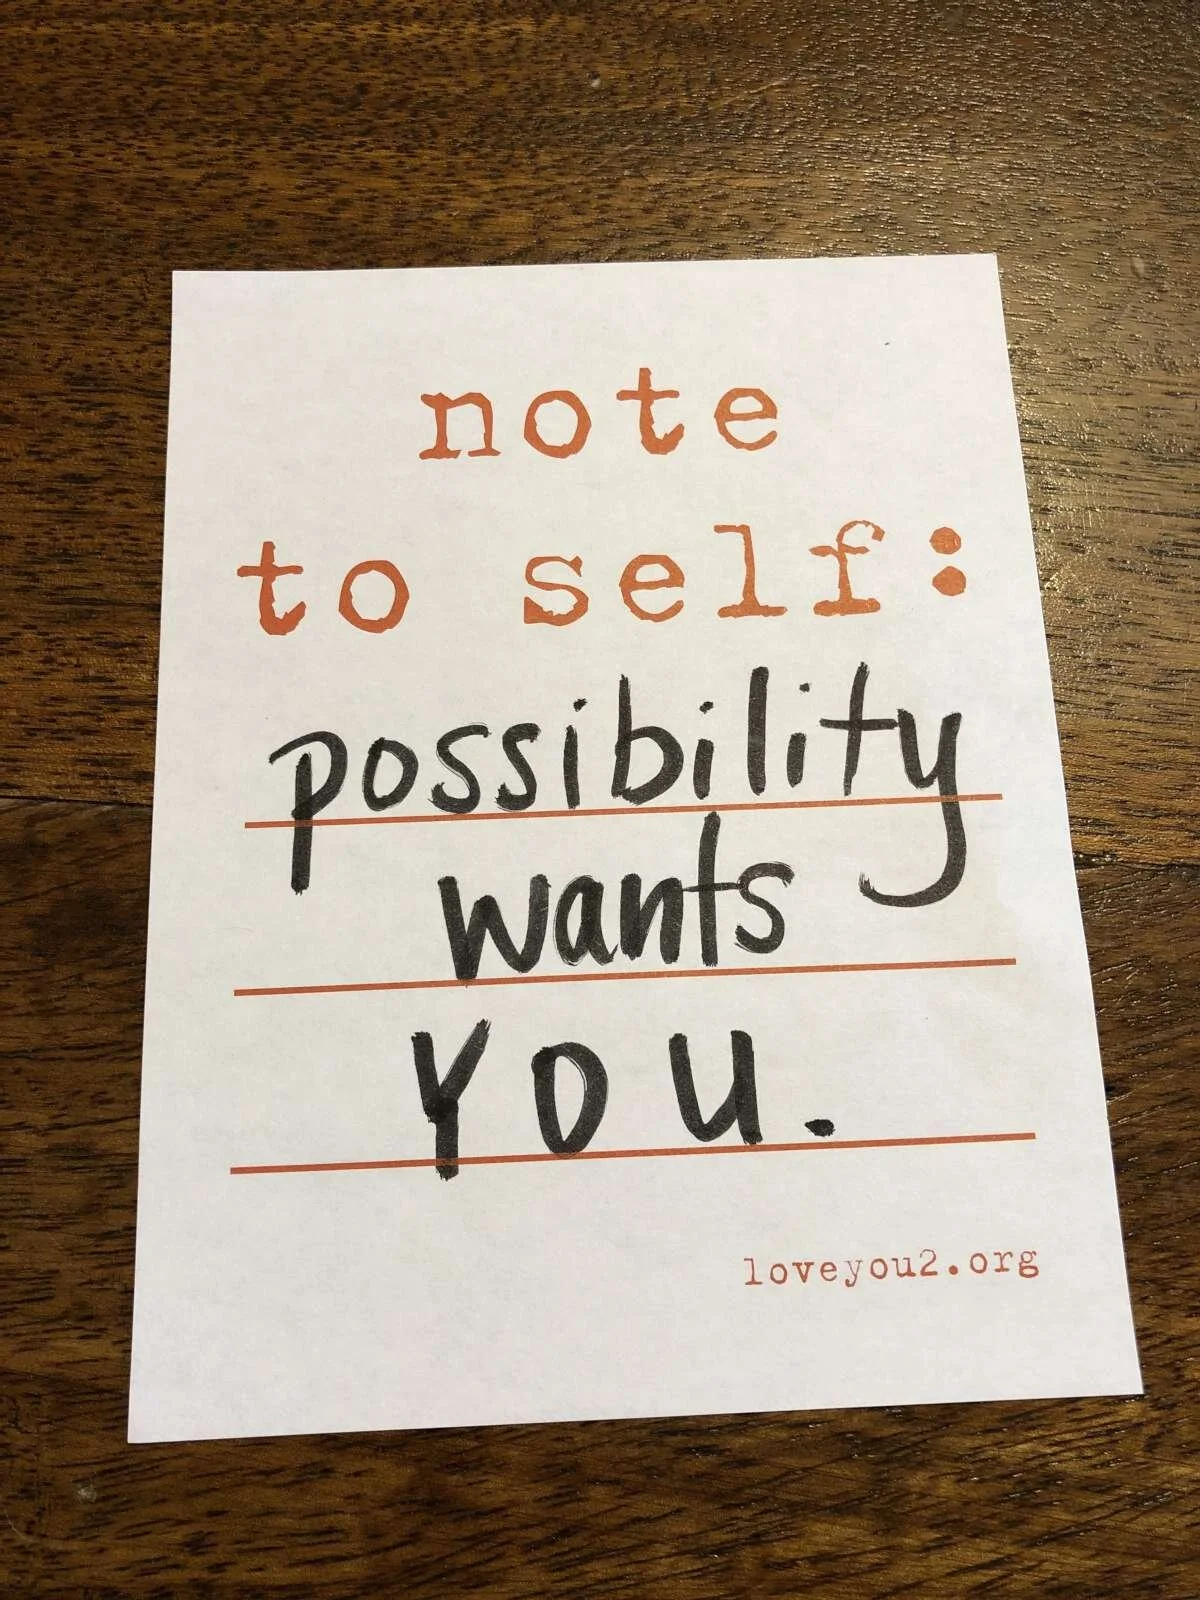 note
to self:
possibility
wants
YOU.
loveyou2.org